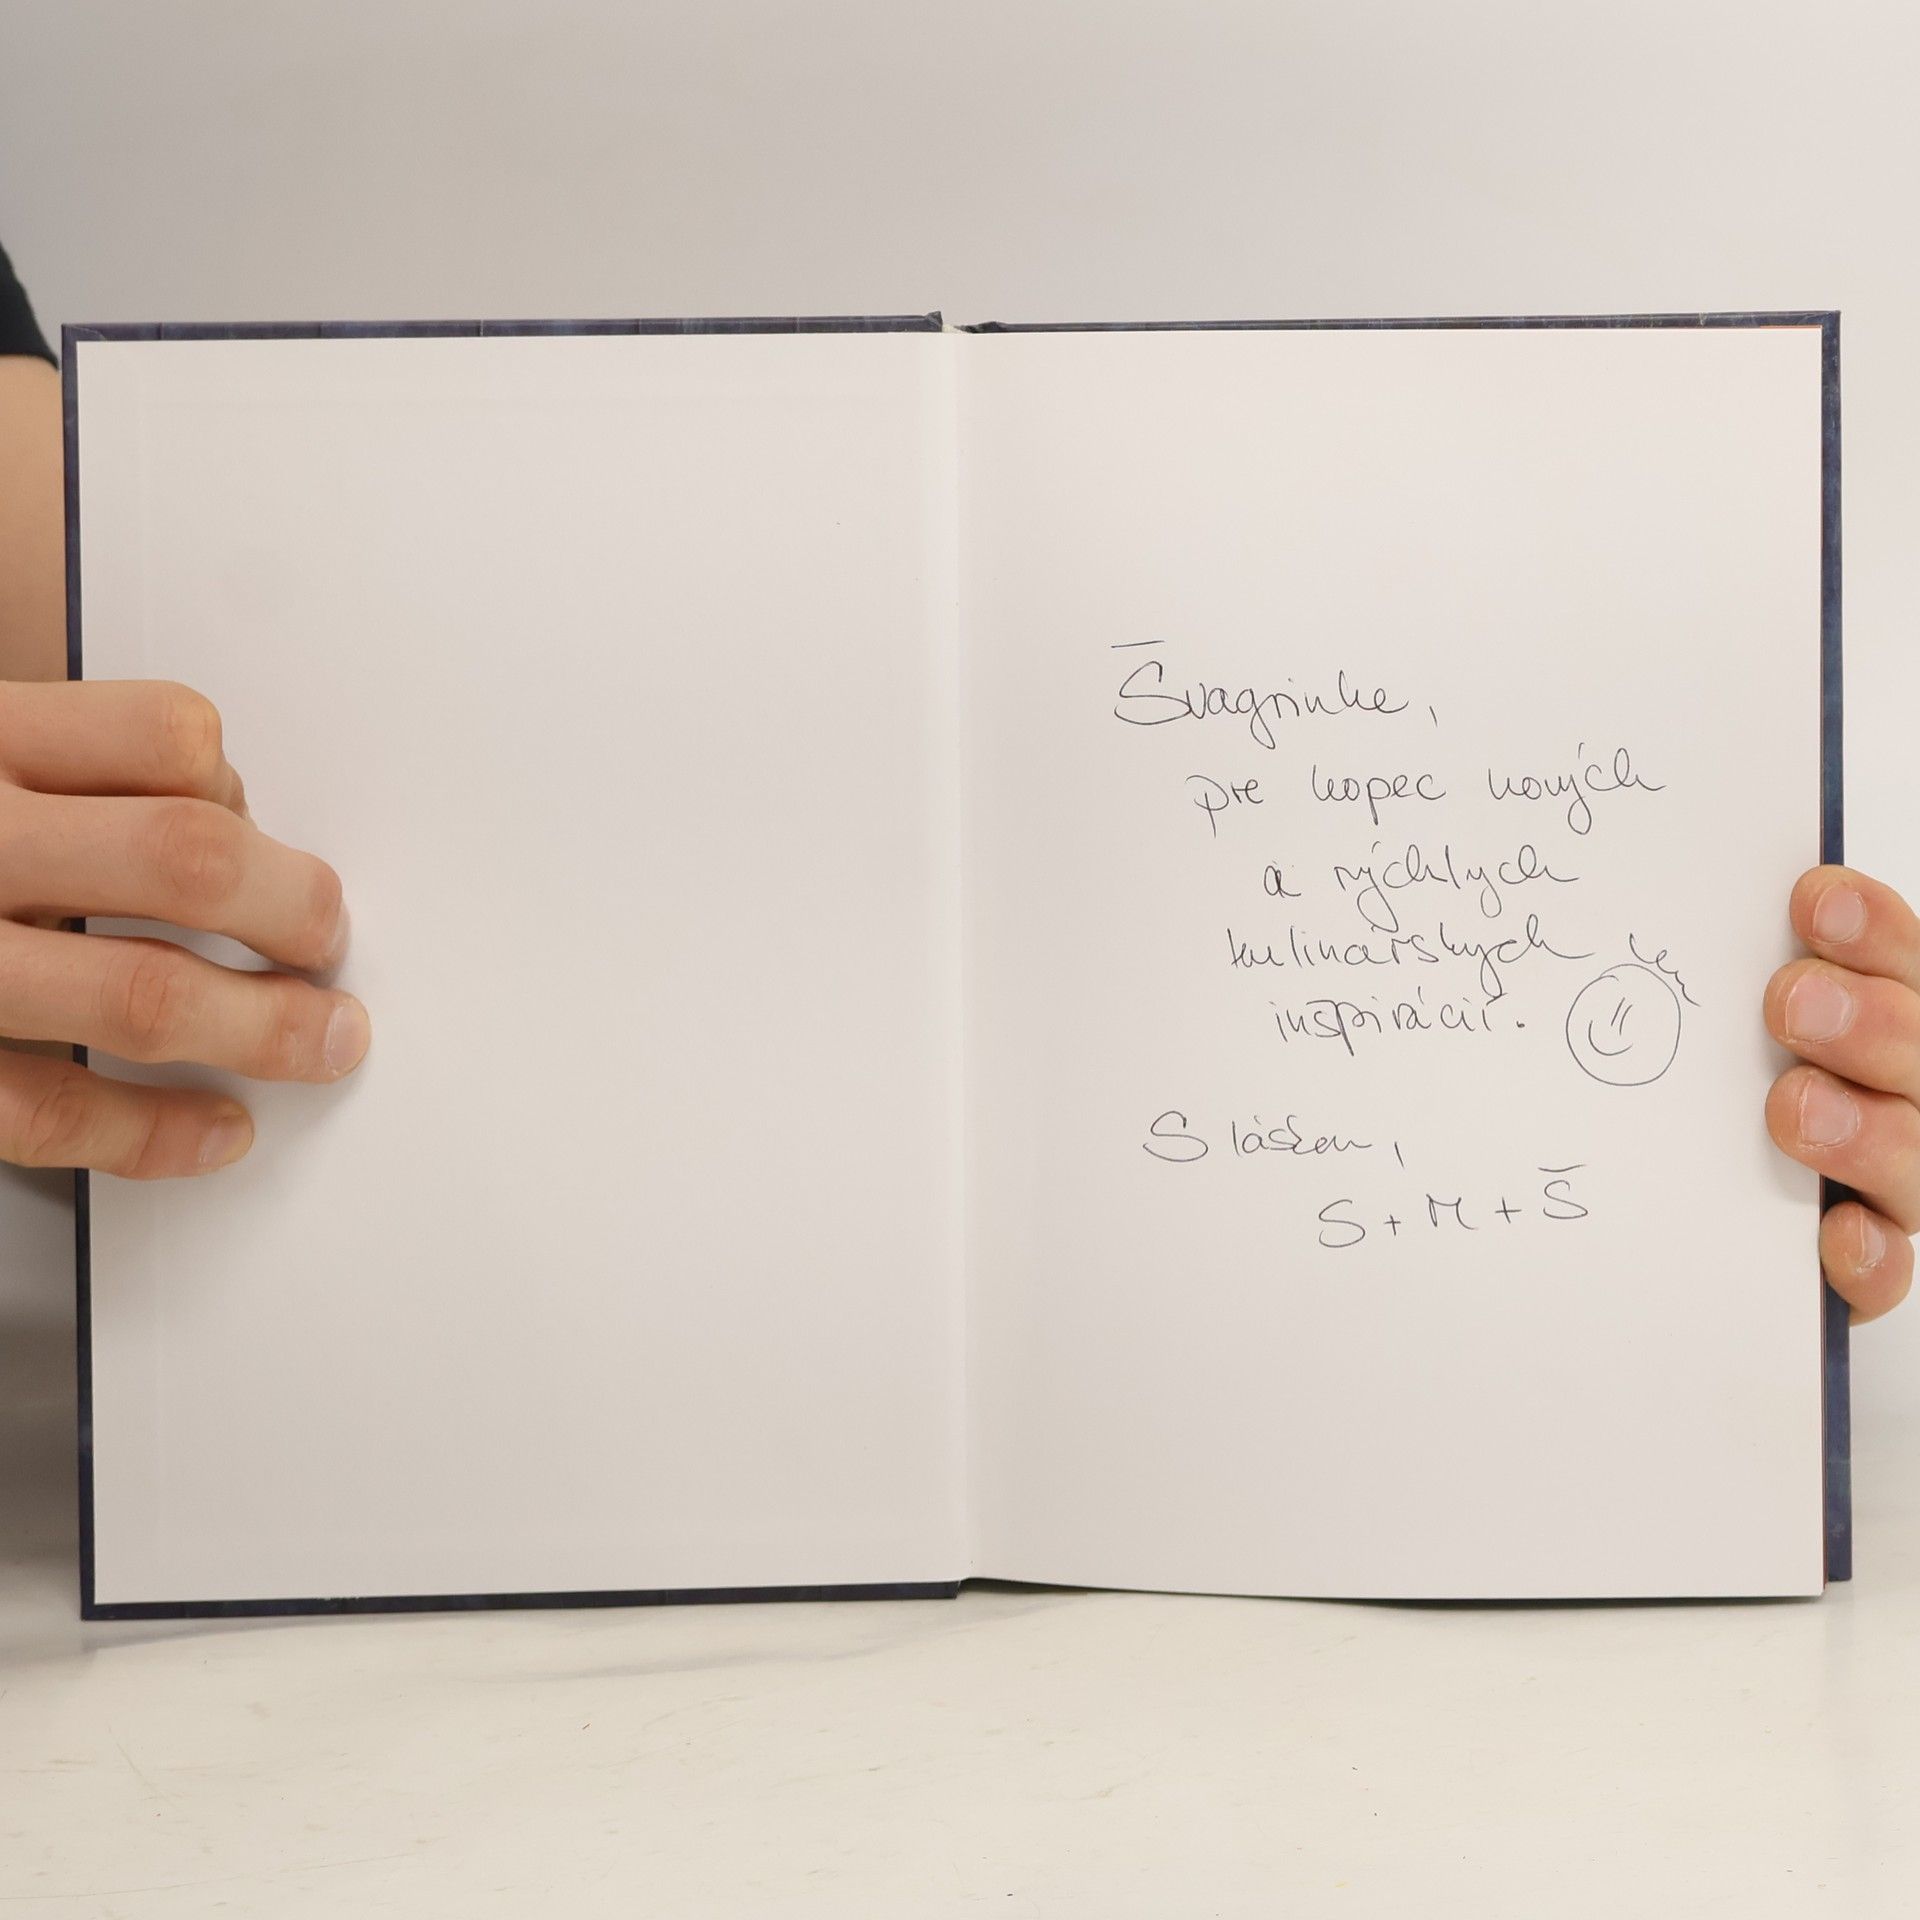 Švagrinke,
pre kopec nových
a rýchlych
kulinárskych
inšpirácií.
S láskou,
S + M + Š